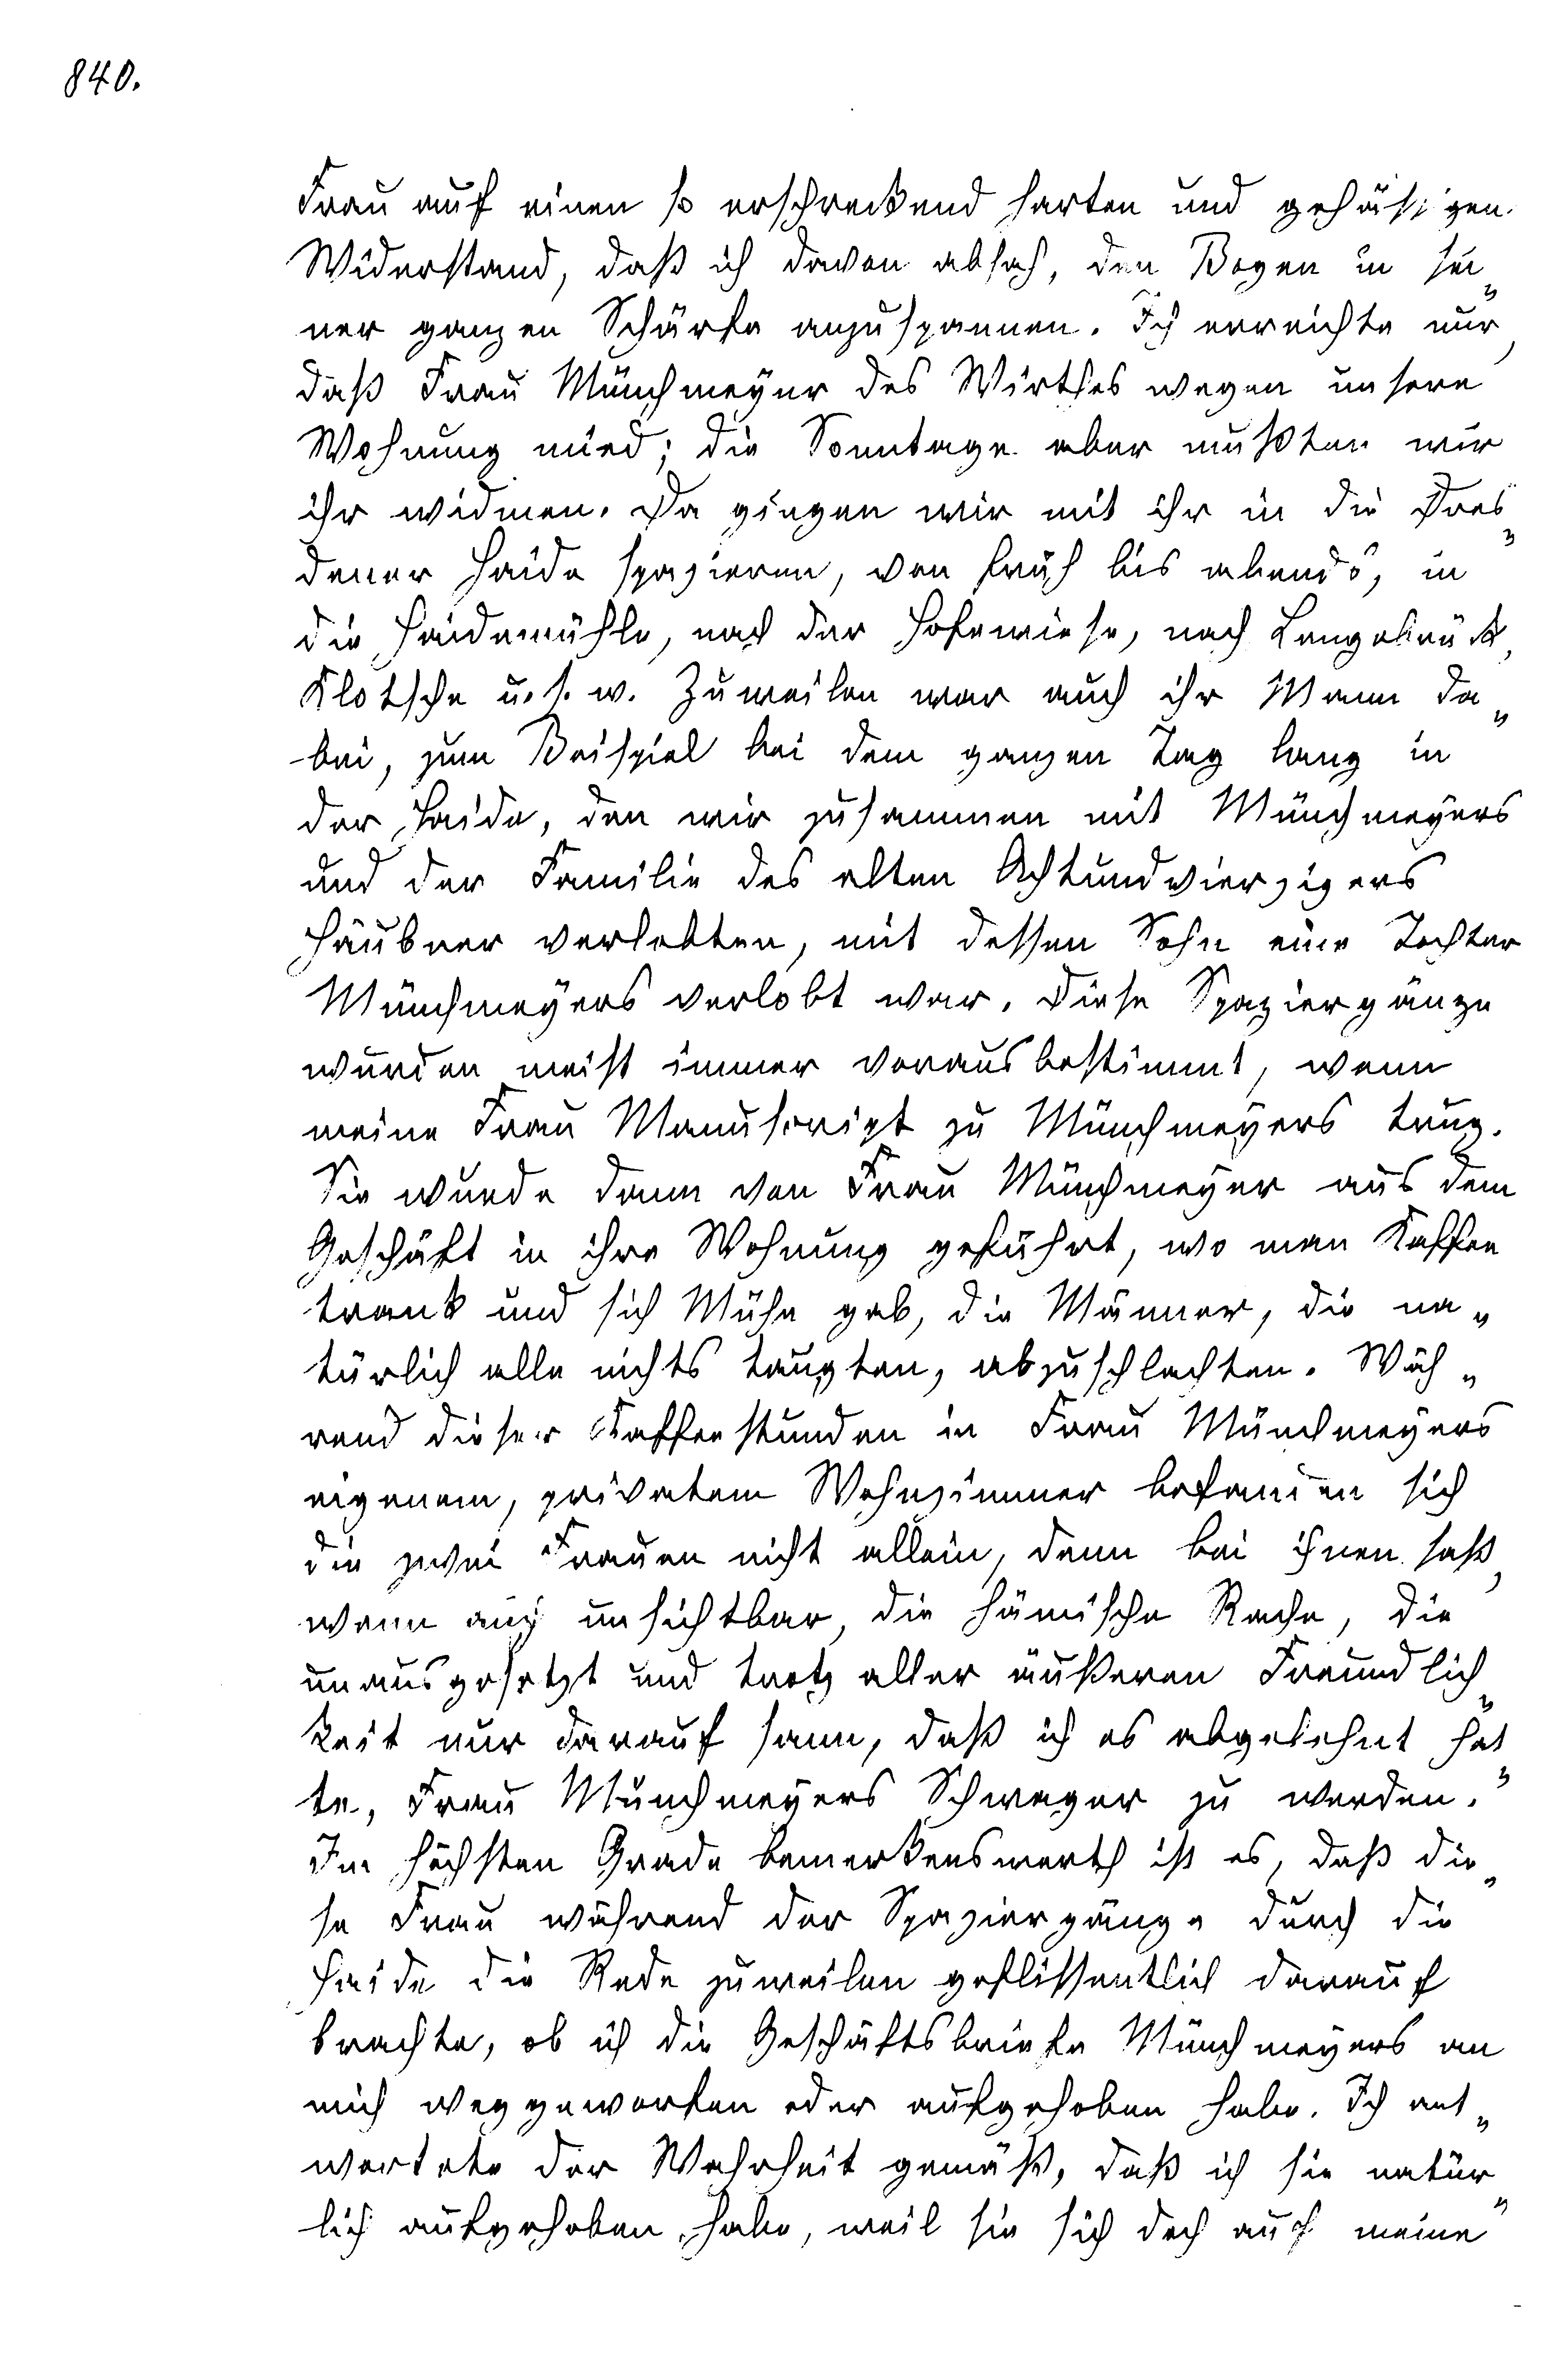 840.
Frau auf einen so erschreckend harten und gehässigen
Widerstand, daß ich davon absah, den Bogen in sei„
ner ganzen Schärfe anzuspannen. Ich erreichte nur,
daß Frau Münchmeyer des Wirthes wegen unsere
Wohnung mied; die Sonntage aber mußten wir
ihr widmen. Da gingen wir mit ihr in die Dres„
dener Haide spazieren, von früh bis abends, in
die Haidemühle, nach der Hofewiese, nach Langebrück,
Klotsche u. s. w. Zuweilen war auch ihr Mann da„
bei, zum Beispiel bei dem ganzen Tag lang in
der Haide, den wir zusammen mit Münchmeyers
und der Familie des alten Achtundvierzigers
Häubner verlebten, mit dessen Sohn eine Tochter
Münchmeyers verlobt war. Diese Spaziergänge
wurden meist immer vorausbestimmt, wenn
meine Frau Manuscript zu Münchmeyers trug.
Sie wurde dann von Frau Münchmeyer aus dem
Geschäft in ihre Wohnung geführt, wo man Kaffee
trank und sich Mühe gab, die Männer, die na„
türlich alle nichts taugten, abzuschlachten. Wäh„
rend dieser Kaffeestunden in Frau Münchmeyers
eigenem, privatem Wohnzimmer befanden sich
die zwei Frauen nicht allein, denn bei ihnen saß,
wenn auch unsichtbar, die hämische Rache, die
unausgesetzt und trotz aller äußeren Freundlich„
keit nur darauf sann, daß ich es abgelehnt hat„
te, Frau Münchmeyers Schwager zu werden.
Im höchsten Grade bemerkenswerth ist es, daß die„
se Frau während der Spaziergänge durch die
Haide die Rede zuweilen geflissentlich darauf
brachte, ob ich die Geschäftsbriefe Münchmeyers an
mich weggeworfen oder aufgehoben habe. Ich ant„
wortete der Wahrheit gemäß, daß ich sie natür„
lich aufgehoben habe, weil sie sich doch auf meine